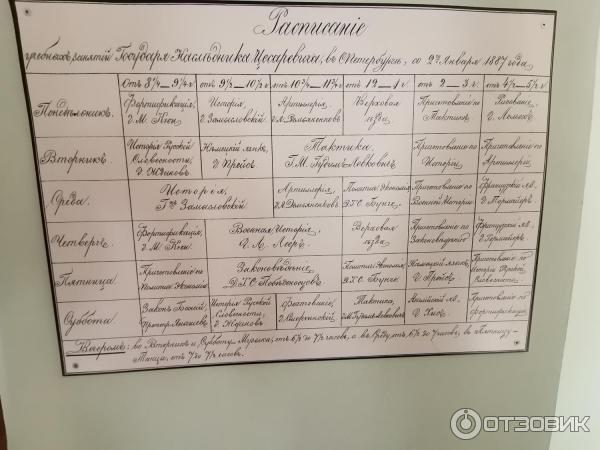 Расписаніе
учебныхъ занятій Государя Наслѣдника Цесаревича, въ С.Петербургѣ, со 2го Января 1887 года.
отъ 8¼ – 9¼ ч. отъ 9½ – 10½ ч. отъ 10¾ – 11¾ ч. отъ 12 – 1 ч. отъ 2 – 3 ч. отъ 4½ – 5½ ч.
Понедѣльникъ. Фортификація, Исторія, Артиллерія, Верховая Приготовленіе по Рисованіе,
г. М. Кюи. г. Замысловскій. г. Демьяненковъ ѣзда. Тактикѣ.
Вторникъ. Исторія Русской Нѣмецкій языкъ, Тактика, Приготовленіе по Приготовленіе по
Словесности, г. Г.М. Исторіи. Артиллеріи.
Среда. Исторія, Артиллерія, Политич. Экономія, Приготовленіе по Французскій яз.
Г-нъ Замысловскій. г. Демьяненковъ Д.Т.С. Бунге. Военной Исторіи
Четвергъ. Фортификація, Военная Исторія, Верховая Приготовленіе по Французскій яз.
г. М. Кюи. Г. Л. Лееръ. ѣзда.
Пятница. Приготовленіе по Законовѣдѣніе, Политич. Экономія, Нѣмецкій языкъ, Приготовленіе по
Политич. Экономіи Д.Т.С. Побѣдоносцевъ Д.Т.С. Бунге Исторіи Русской
Словесности.
Суббота. Законъ Божій, Исторія Русской Тактика, Англійскій яз. Приготовленіе по
Словесности, г. Хисъ. фортификаціи.
Вечеромъ: во Вторникъ и Субботу Музыка, отъ 6½ до 7½ часовъ, а въ Среду, отъ 6½ до 7 часовъ, въ Пятницу –
Танцы, отъ 7 до 7½ часовъ.
ОТЗОВИК